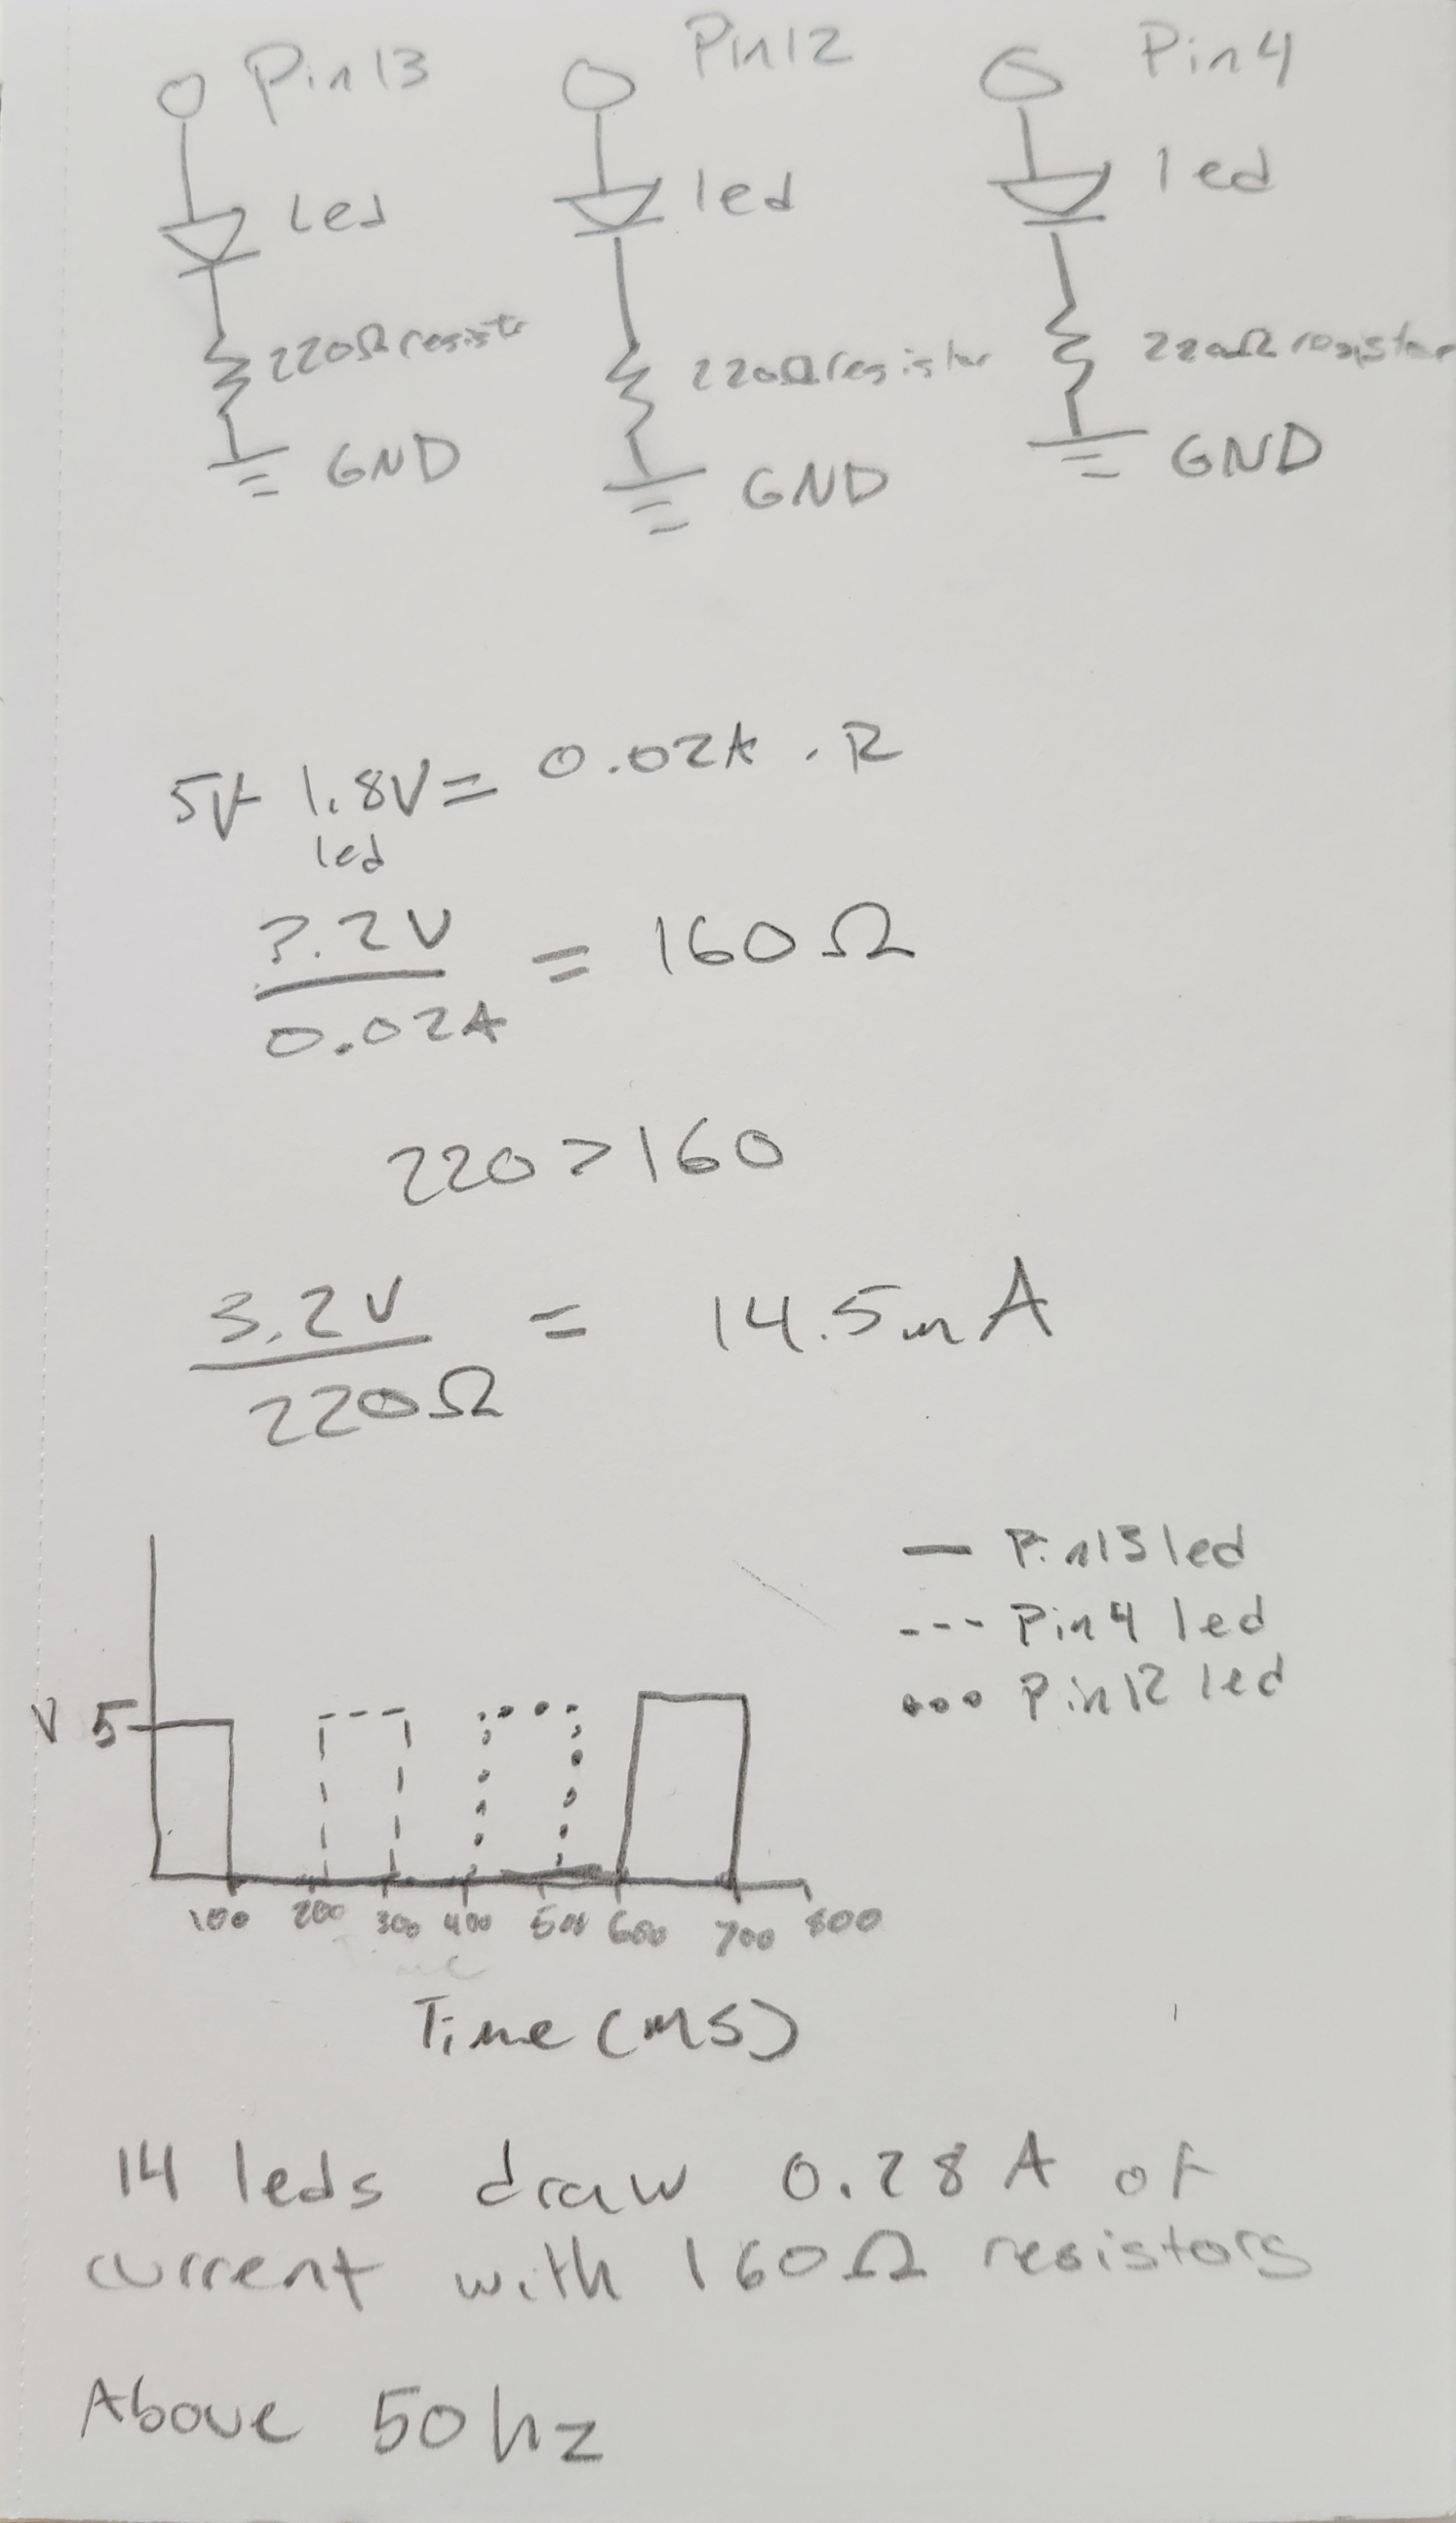 Pin13 Pin12 Pin4
Led led led
220Ω resistr 220Ω resistor 220Ω resistor
GND GND GND
5V - 1.8V = 0.02A · R
led
3.2V
0.02A
= 160Ω
220 > 160
3.2V
220Ω
= 14.5mA
Pin13 led
Pin4 led
Pin12 led
V 5
100 200 300 400 500 600 700 800
Time
Time (ms)
14 leds draw 0.28 A of
current with 160Ω resistors
Above 50hz